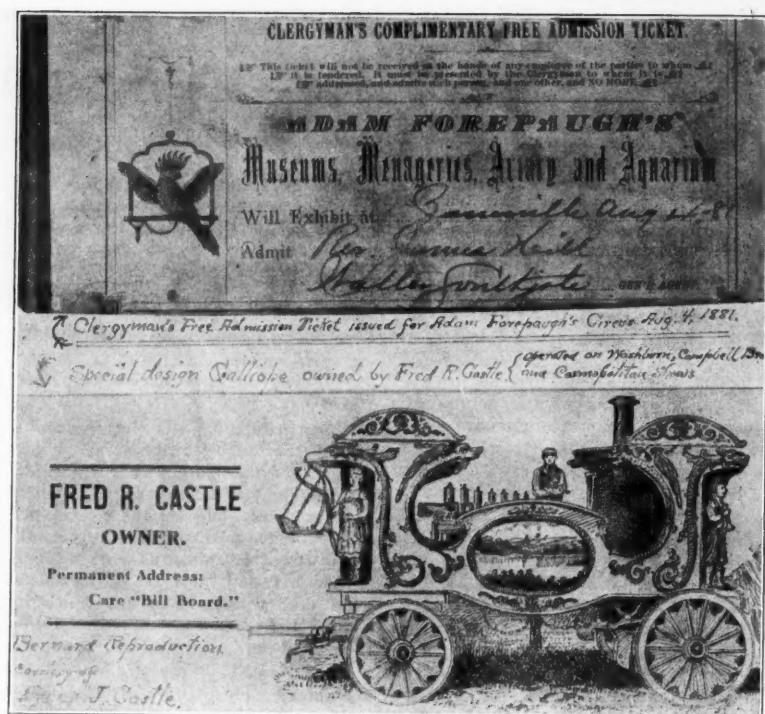 CLERGYMAN'S COMPLIMENTARY FREE ADMISSION TICKET.
This ticket will not be received in the hands of any employee of the parties to whom
it is tendered. It must be presented by the Clergyman to whom it is
addressed, and admits such person, and one other, and NO MORE.
ADAM FOREPAUGH'S
Museums, Menageries, Aviary and Aquarium
Will Exhibit at Aug
Admit Rev. James
GEN'L AGENT.
Clergyman's Free Admission Ticket issued for Adam Forepaugh's Circus Aug. 4, 1881.
Special design Calliope owned by Fred R. Castle { operated on Washburn, Campbell Bro
and Cosmopolitan Shows
FRED R. CASTLE
OWNER.
Permanent Address:
Care "Bill Board."
Bernard Reproduction
J. Castle.